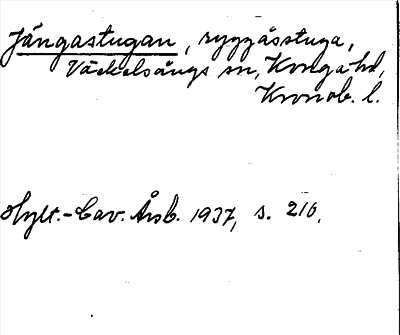 Jängastugan, ryggåsstuga,
Väckelsångs sn, Konga hd,
Kronob. l.
Hylt.-Cav. Årsb. 1937, s. 216.